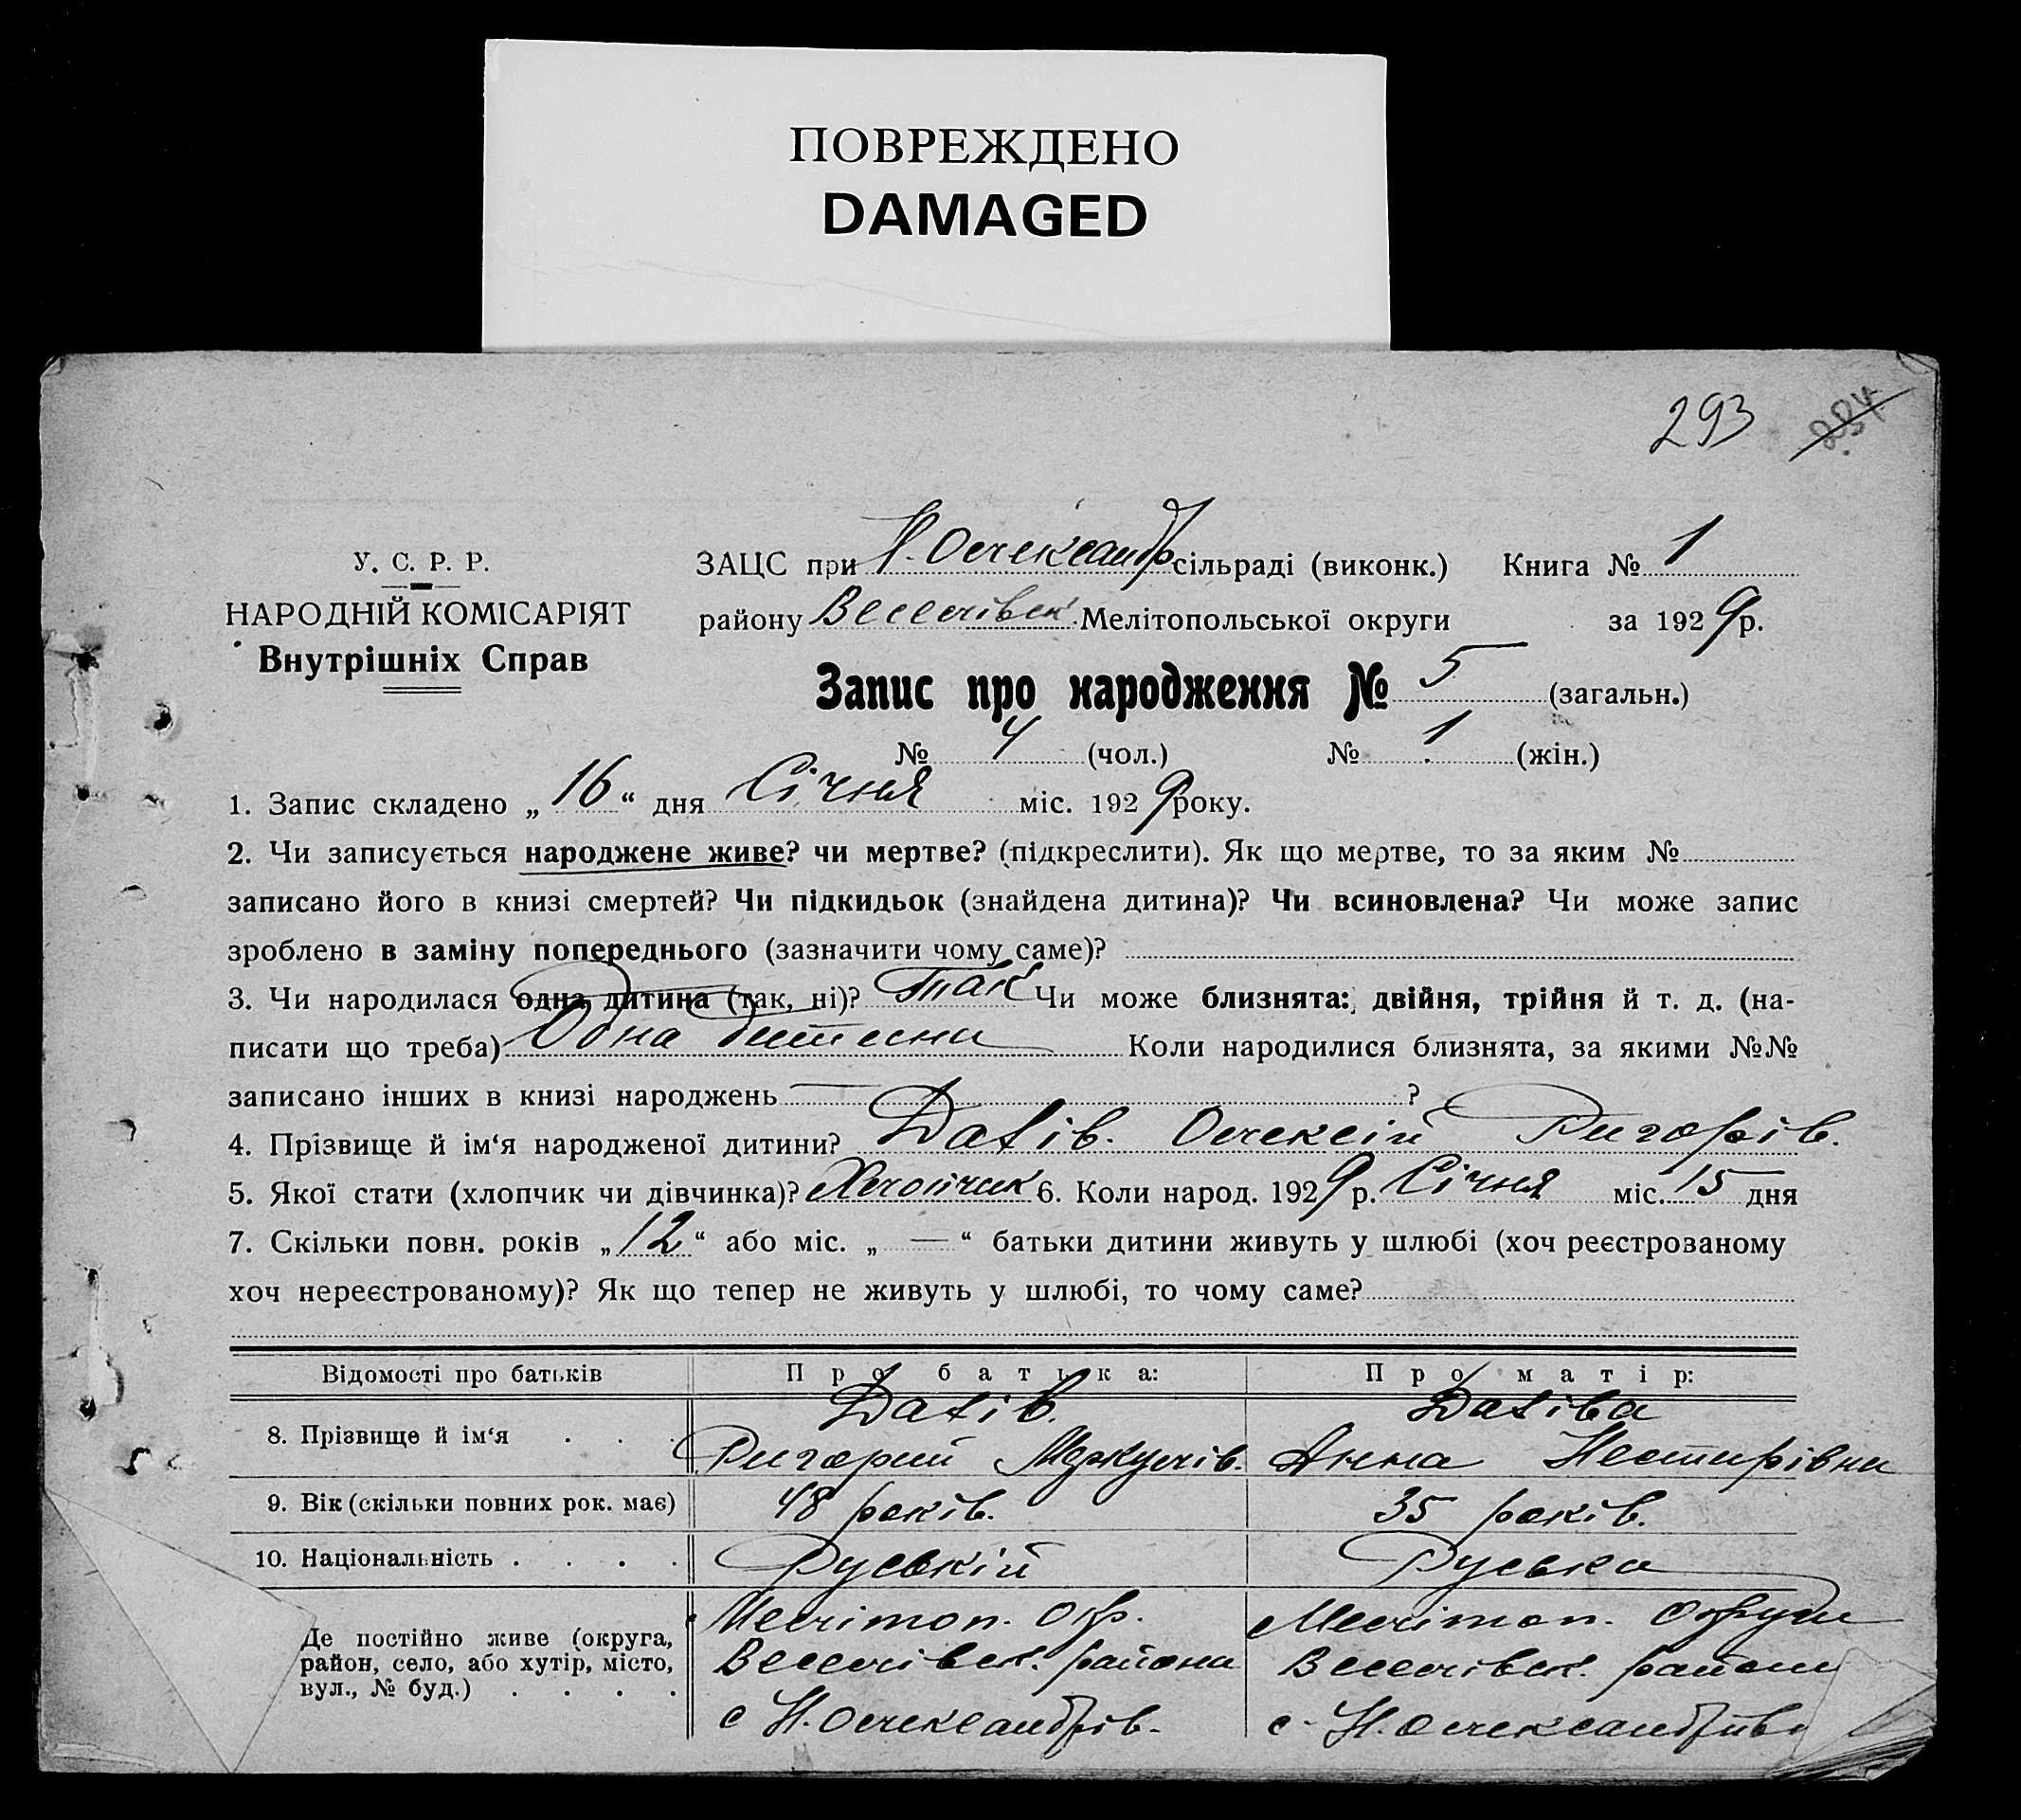 ПОВРЕЖДЕНО
DAMAGED
293 234
У. С. Р. Р.
НАРОДНІЙ КОМІСАРІЯТ
Внутрішніх Справ
ЗАЦС при Н. Олександр сільраді (виконк.) Книга № 1
району Веселівськ. Мелітопольської округи за 1929 р.
Запис про народження № 5 (загальн.)
№ 4 (чол.) № 1 (жін.)
1. Запис складено „ 16 “ дня Січня міс. 1929 року.
2. Чи записується народжене живе? чи мертве? (підкреслити). Як що мертве, то за яким №
записано його в книзі смертей? Чи підкидьок (знайдена дитина)? Чи всиновлена? Чи може запис
зроблено в заміну попереднього (зазначити чому саме)?
3. Чи народилася одна дитина (так, ні)? Так Чи може близнята: двійня, трійня й т. д. (на-
писати що треба) Одна дитина Коли народилися близнята, за якими №№
записано інших в книзі народжень — ?
4. Прізвище й ім‘я народженої дитини? Олексій Ригорів.
5. Якої стати (хлопчик чи дівчинка)? Хлопчик 6. Коли народ. 1929 р. Січня міс. 15 дня
7. Скільки повн. років „ 12 “ або міс. „ — “ батьки дитини живуть у шлюбі (хоч реєстрованому
хоч нереєстрованому)? Як що тепер не живуть у шлюбі, то чому саме?
Відомості про батьків Про батька: Про матір:
8. Прізвище й ім‘я . . .
Ригорий Меркулів. Анна Нестирівна
9. Вік (скільки повних рок. має) 48 років. 35 років.
10. Національність . . . . Руській Руська
Де постійно живе (округа, район, село, або хутір, місто, вул., № буд.) . . . .
Мелітоп. Окр. Мелітоп. Округи
Веселівськ. района Веселівськ. района
с Н. Олександрів. с. Н. Олександрівк